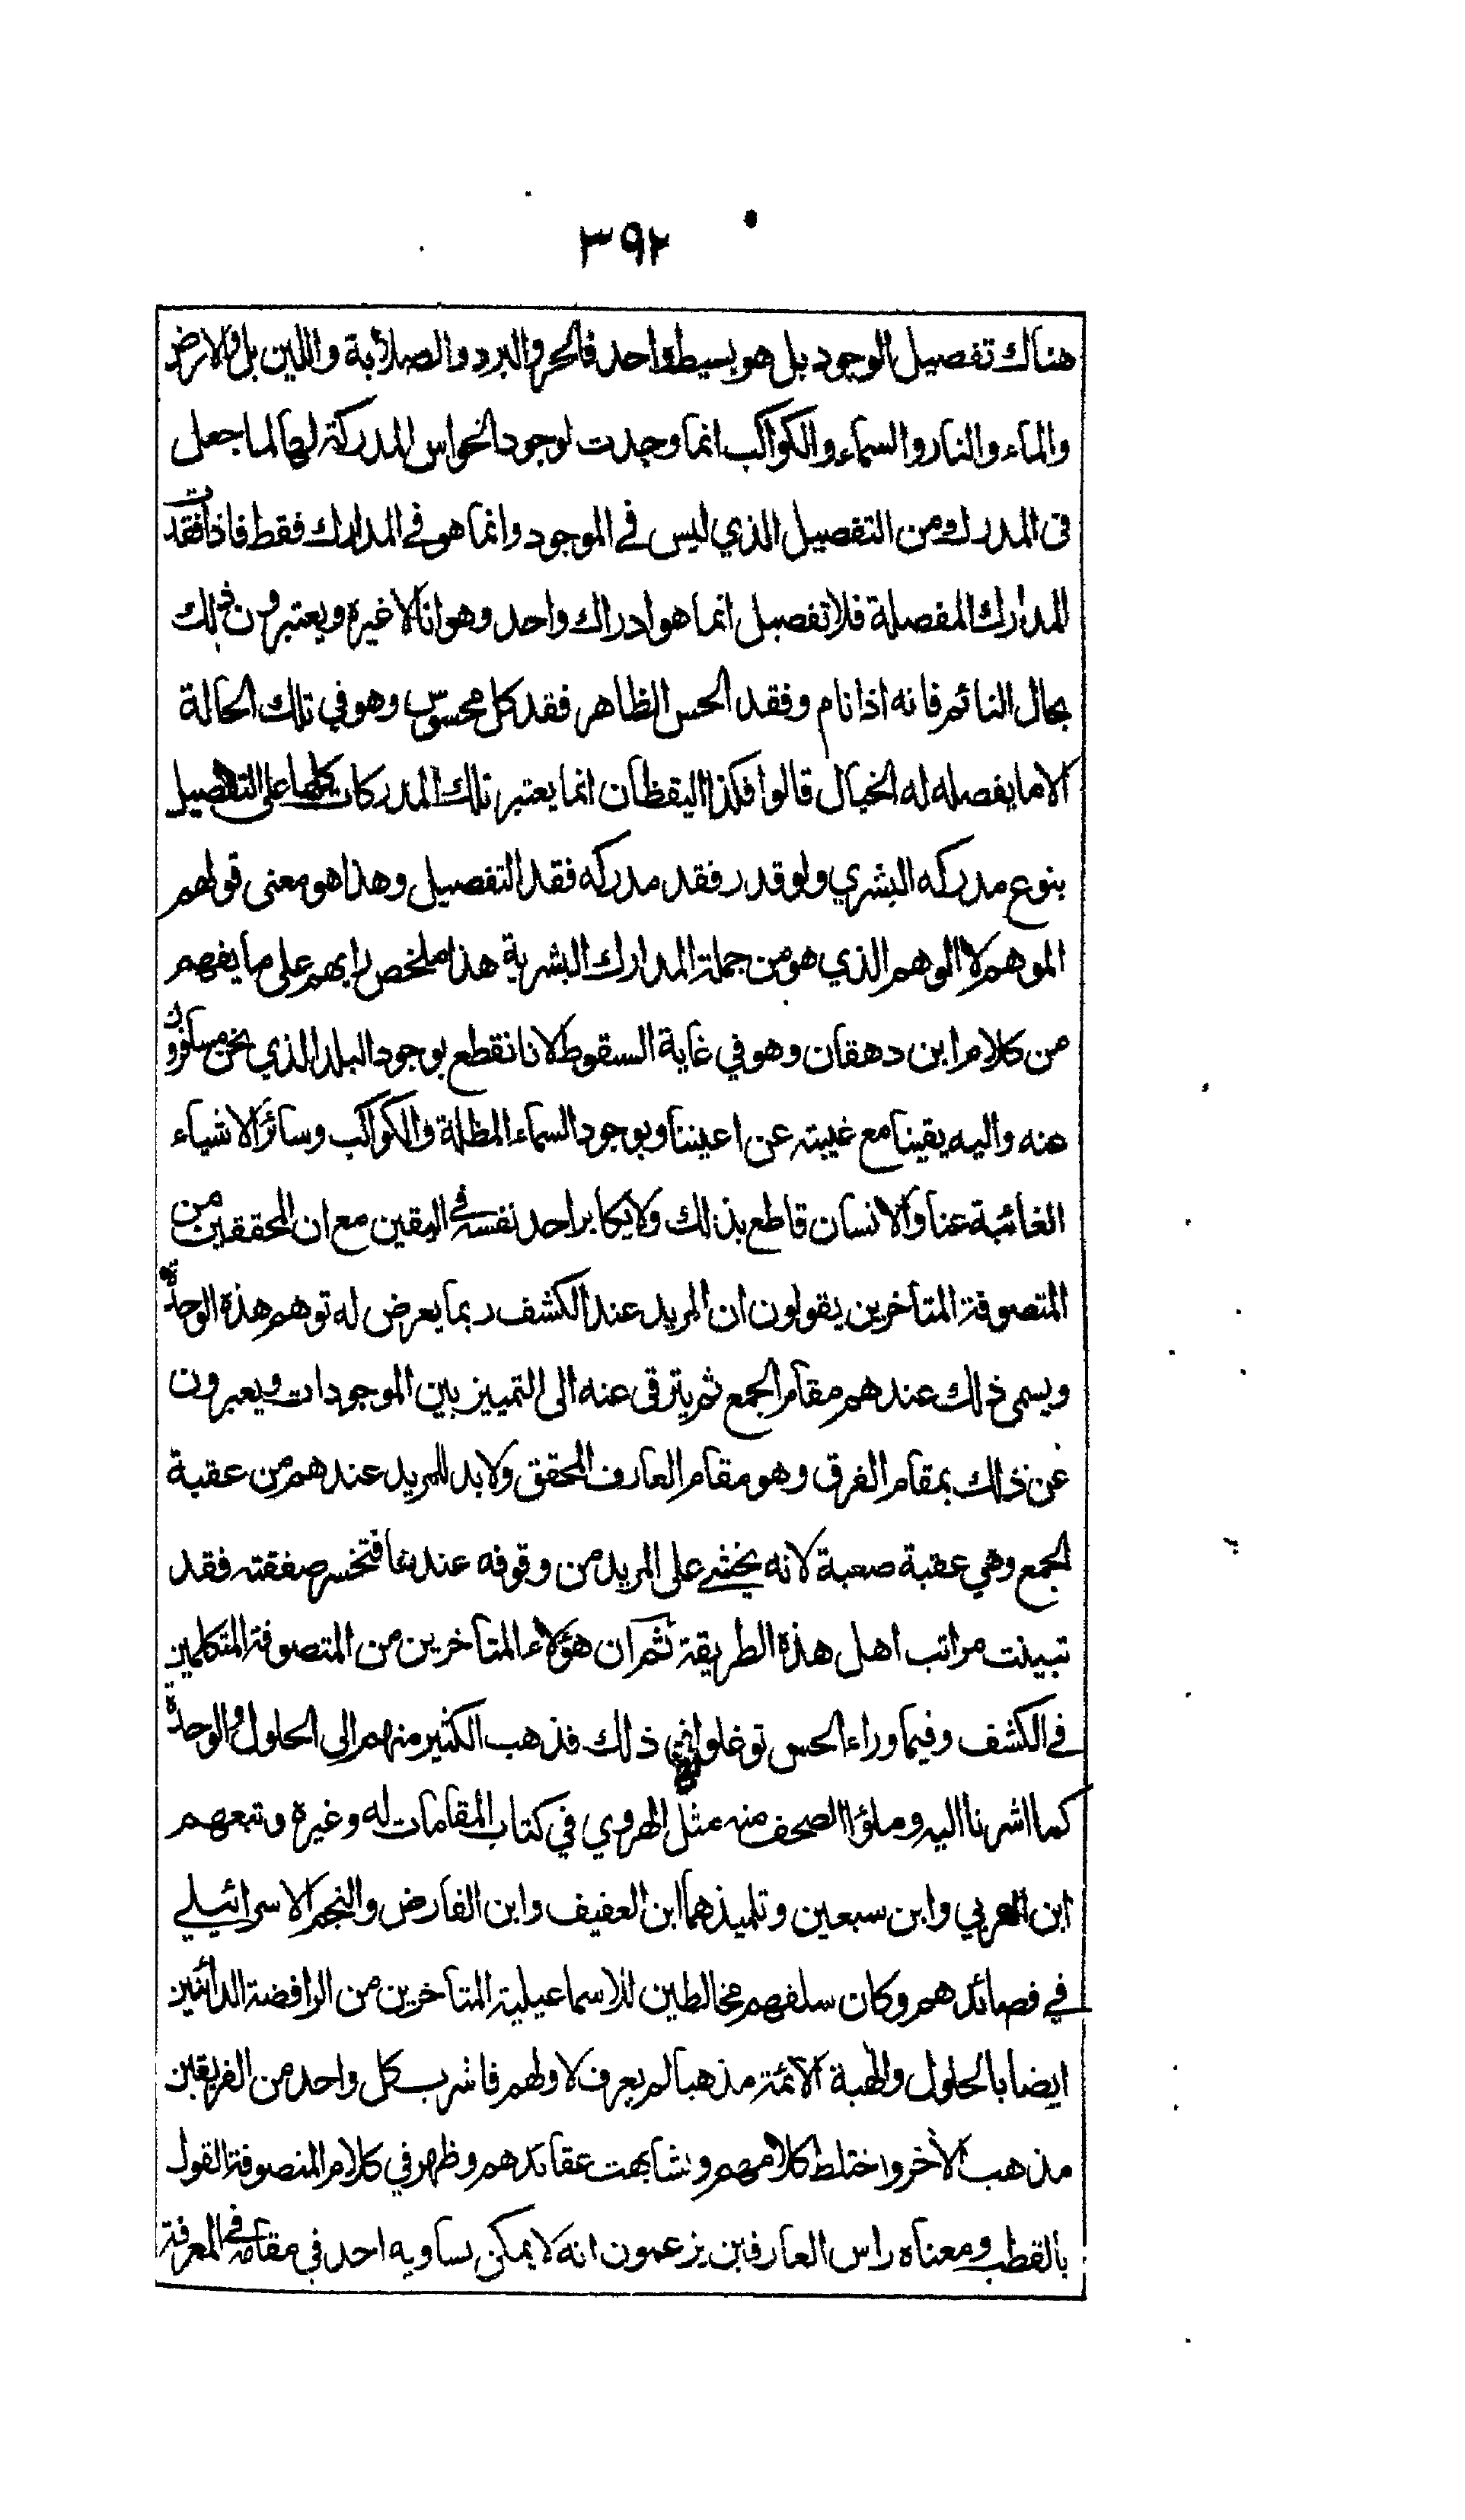 ٣٩٢
هناك تفصيل الوجود بل هو بسيط واحد فالحر والبرد والصلابة واللين بل والارض
والماء والنار والسماء والكواكب انما وجدت لوجود الحواس المدركة لها لما جعل
فى المدرك من التفصيل الذي ليس في الموجود وانما هو في المدارك فقط فاذا فقدت
المدارك المفصلة فلا تفصيل انما هو ادراك واحد وهو انا لا غيره ويعتبرون ذلك
بحال النائم فانه اذا نام وفقد الحس الظاهر فقد كل محسوس وهو في تلك الحالة
الا ما يفصله له الخيال قالوا فكذا اليقظان انما يعتبر تلك المدركات كلها على التفصيل
بنوع مدركه البشري ولو قدر فقد مدركه فقد التفصيل وهذا هو معنى قولهم
الموهم لا الوهم الذي هو من جملة المدارك البشرية هذا ملخص رايهم على ما يفهم
من كلام ابن دهقان وهو في غاية السقوط لانا نقطع بوجود البلد الذي نحن مسافرون
عنه واليه يقينا مع غيبته عن اعيننا وبوجود السماء المظلة والكواكب وسائر الاشياء
الغائبة عنا والانسان قاطع بذلك ولا يكابر احد نفسه في اليقين مع ان المحققين من
المتصوفة المتاخرين يقولون ان المريد عند الكشف ربما يعرض له توهم هذه الوحدة
ويسمى ذلك عندهم مقام الجمع ثم يترقى عنه الى التمييز بين الموجودات ويعبرون
عن ذلك بمقام الفرق وهو مقام العارف المحقق ولا بد للمريد عندهم من عقبة
الجمع وهي عقبة صعبة لانه يخشى على المريد من وقوفه عندها فتخسر صفقته فقد
تبينت مراتب اهل هذه الطريقة ثم ان هؤلاء المتاخرين من المتصوفة المتكلمين
في الكشف وفيما وراء الحس توغلوا في ذلك فذهب الكثير منهم الى الحلول والوحدة
كما اشرنا اليه وملؤا الصحف منه مثل الهروي في كتاب المقامات له وغيره وتبعهم
ابن العربي وابن سبعين وتلميذهما ابن العفيف وابن الفارض والنجم الاسرائيلي
في قصائدهم وكان سلفهم مخالطين للاسماعيلية المتاخرين من الرافضة الدائنين
ايضا بالحلول والهية الائمة مذهبا لم يعرف لاولهم فاشرب كل واحد من الفريقين
مذهب الاخر واختلط كلامهم وتشابهت عقائدهم وظهر في كلام المتصوفة القول
بالقطب ومعناه راس العارفين يزعمون انه لا يمكن يساويه احد في مقامه في المعرفة